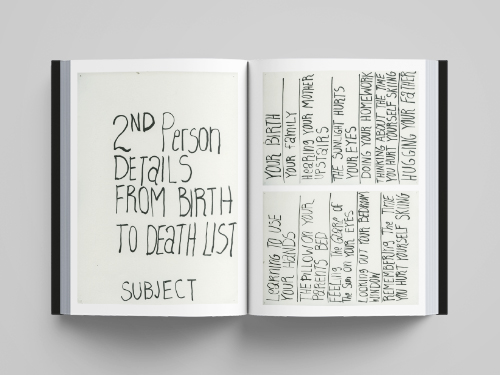 2ND Person
DETAILS
FROM BIRTH
TO DEATH LIST
SUBJECT
YOUR BIRTH
YOUR FAMILY
HEARING YOUR MOTHER
UPSTAIRS
THE SUNLIGHT HURTS
YOUR EYES
DOING YOUR HOMEWORK
THINKING ABOUT THE TIME
YOU HURT YOURSELF SKIING
HUGGING YOUR FATHER
LEARNING TO USE
YOUR HANDS
THE PILLOW ON YOUR
PARENTS BED
FEELING THE GLARE OF
THE SUN ON YOUR EYES
LOOKING OUT YOUR BEDROOM
WINDOW
REMEMBERING THE TIME
YOU HURT YOURSELF SKIING